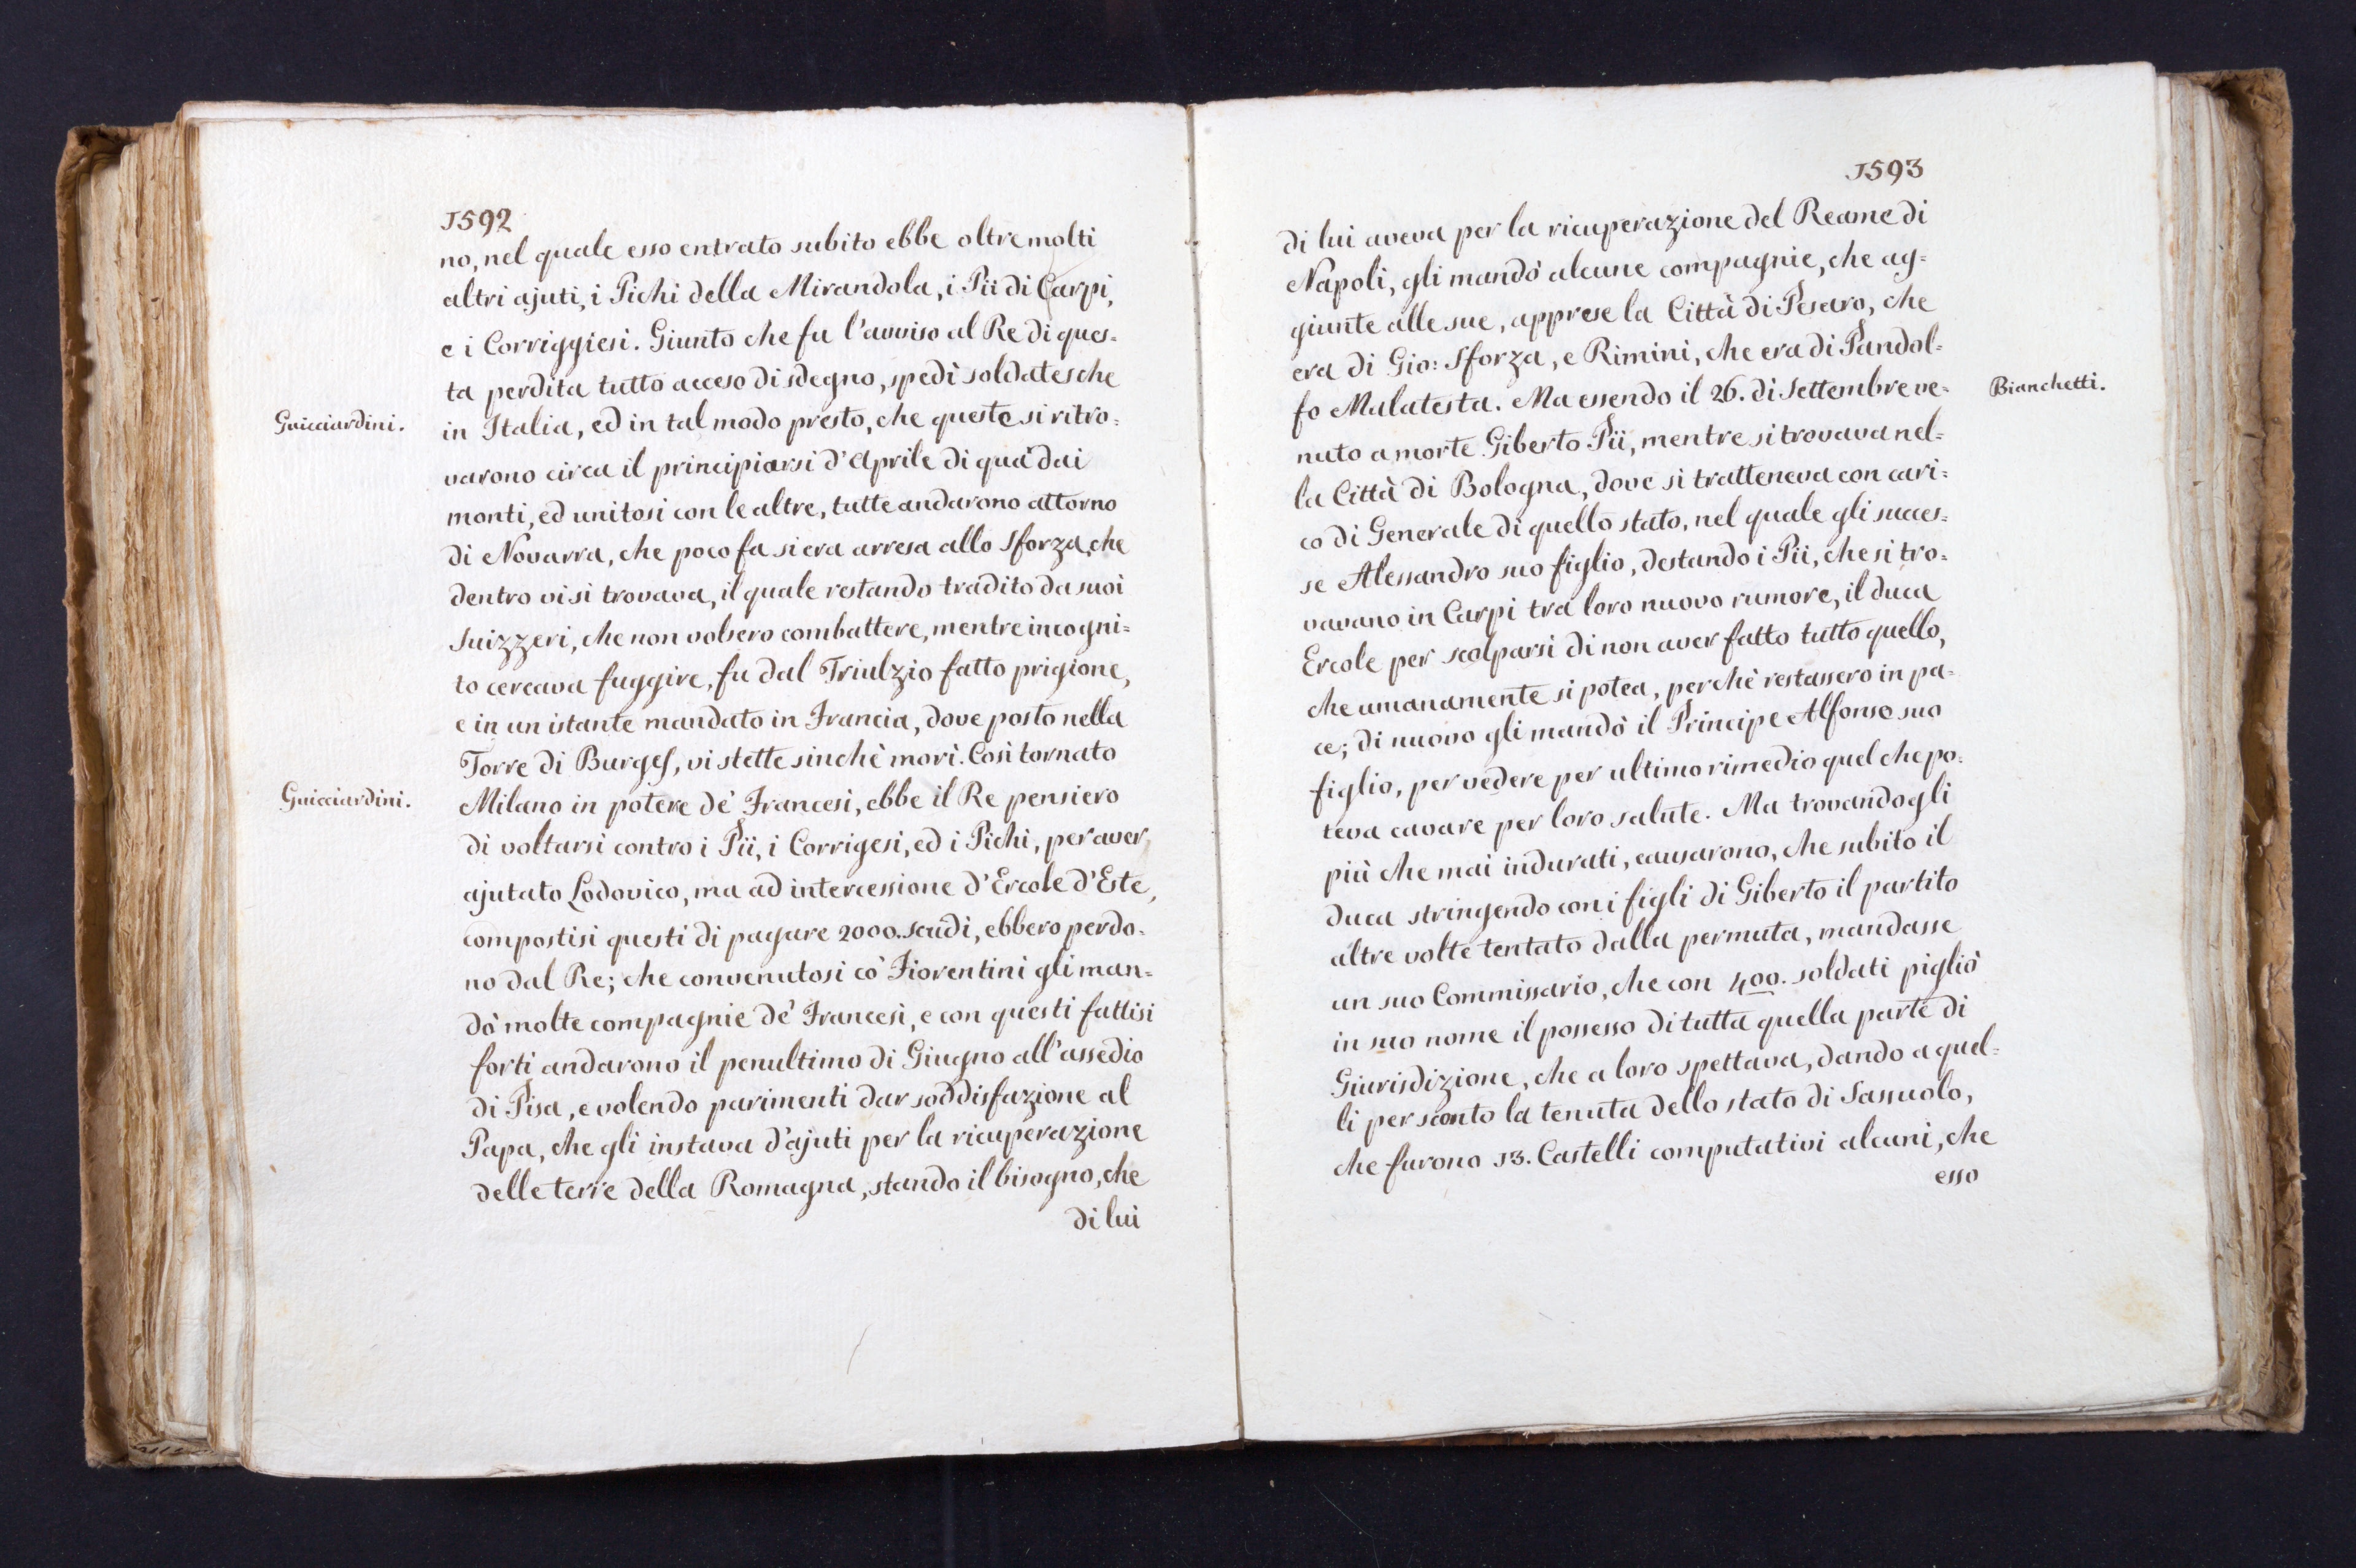 1592
no, nel quale esso entrato subito ebbe oltre molti
altri ajuti, i Pichi della Mirandola, i Pii di Carpi,
e i Corriggiesi. Giunto che fu l'avviso al Re di ques=
ta perdita tutto acceso di sdegno, spedì soldatesche
Guicciardini.
in Italia, ed in tal modo presto, che queste si ritro=
varono circa il principiarsi d'Aprile di quà dai
monti, ed unitosi con le altre, tutte andarono attorno
di Novarra, che poco fa si era arresa allo Sforza, che
dentro vi si trovava, il quale restando tradito da suoi
Suizzeri, che non volsero combattere, mentre incogni=
to cercava fuggire, fu dal Triulzio fatto prigione,
e in un istante mandato in Francia, dove posto nella
Torre di Burges, vi stette sinchè morì. Così tornato
Guicciardini.
Milano in potere de' Francesi, ebbe il Re pensiero
di voltarsi contro i Pii, i Corrigesi, ed i Pichi, per aver
ajutato Lodovico, ma ad intercessione d'Ercole d'Este,
compostisi questi di pagare 2000. scudi, ebbero perdo=
no dal Re; che convenutosi co' Fiorentini gli man=
dò molte compagnie de' Francesi, e con questi fattisi
forti andarono il penultimo di Giugno all'assedio
di Pisa, e volendo parimenti dar soddisfazione al
Papa, che gli instava d'ajuti per la ricuperazione
delle terre della Romagna, stando il bisogno, che
di lui
1593
di lui aveva per la ricuperazione del Reame di
Napoli, gli mandò alcune compagnie, che ag=
giunte alle sue, apprese la Città di Pesaro, che
era di Gio: Sforza, e Rimini, che era di Pandol=
fo Malatesta. Ma essendo il 26. di Settembre ve=
Bianchetti.
nuto a morte Giberto Pii, mentre si trovava nel=
la Città di Bologna, dove si tratteneva con cari=
co di Generale di quello stato, nel quale gli succes=
se Alessandro suo figlio, destando i Pii, che si tro=
vavano in Carpi tra loro nuovo rumore, il duca
Ercole per scolparsi di non aver fatto tutto quello,
che umanamente si potea, perchè restassero in pa=
ce; di nuovo gli mandò il Principe Alfonso suo
figlio, per vedere per ultimo rimedio quel che po=
teva cavare per loro salute. Ma trovandogli
più che mai indurati, causarono, che subito il
duca stringendo con i figli di Giberto il partito
altre volte tentato dalla permuta, mandasse
un suo Commissario, che con 400. soldati pigliò
in suo nome il possesso di tutta quella parte di
Giurisdizione, che a loro spettava, dando a quel=
li per sconto la tenuta dello stato di Sassuolo,
che furono 13. Castelli computativi alcuni, che
esso